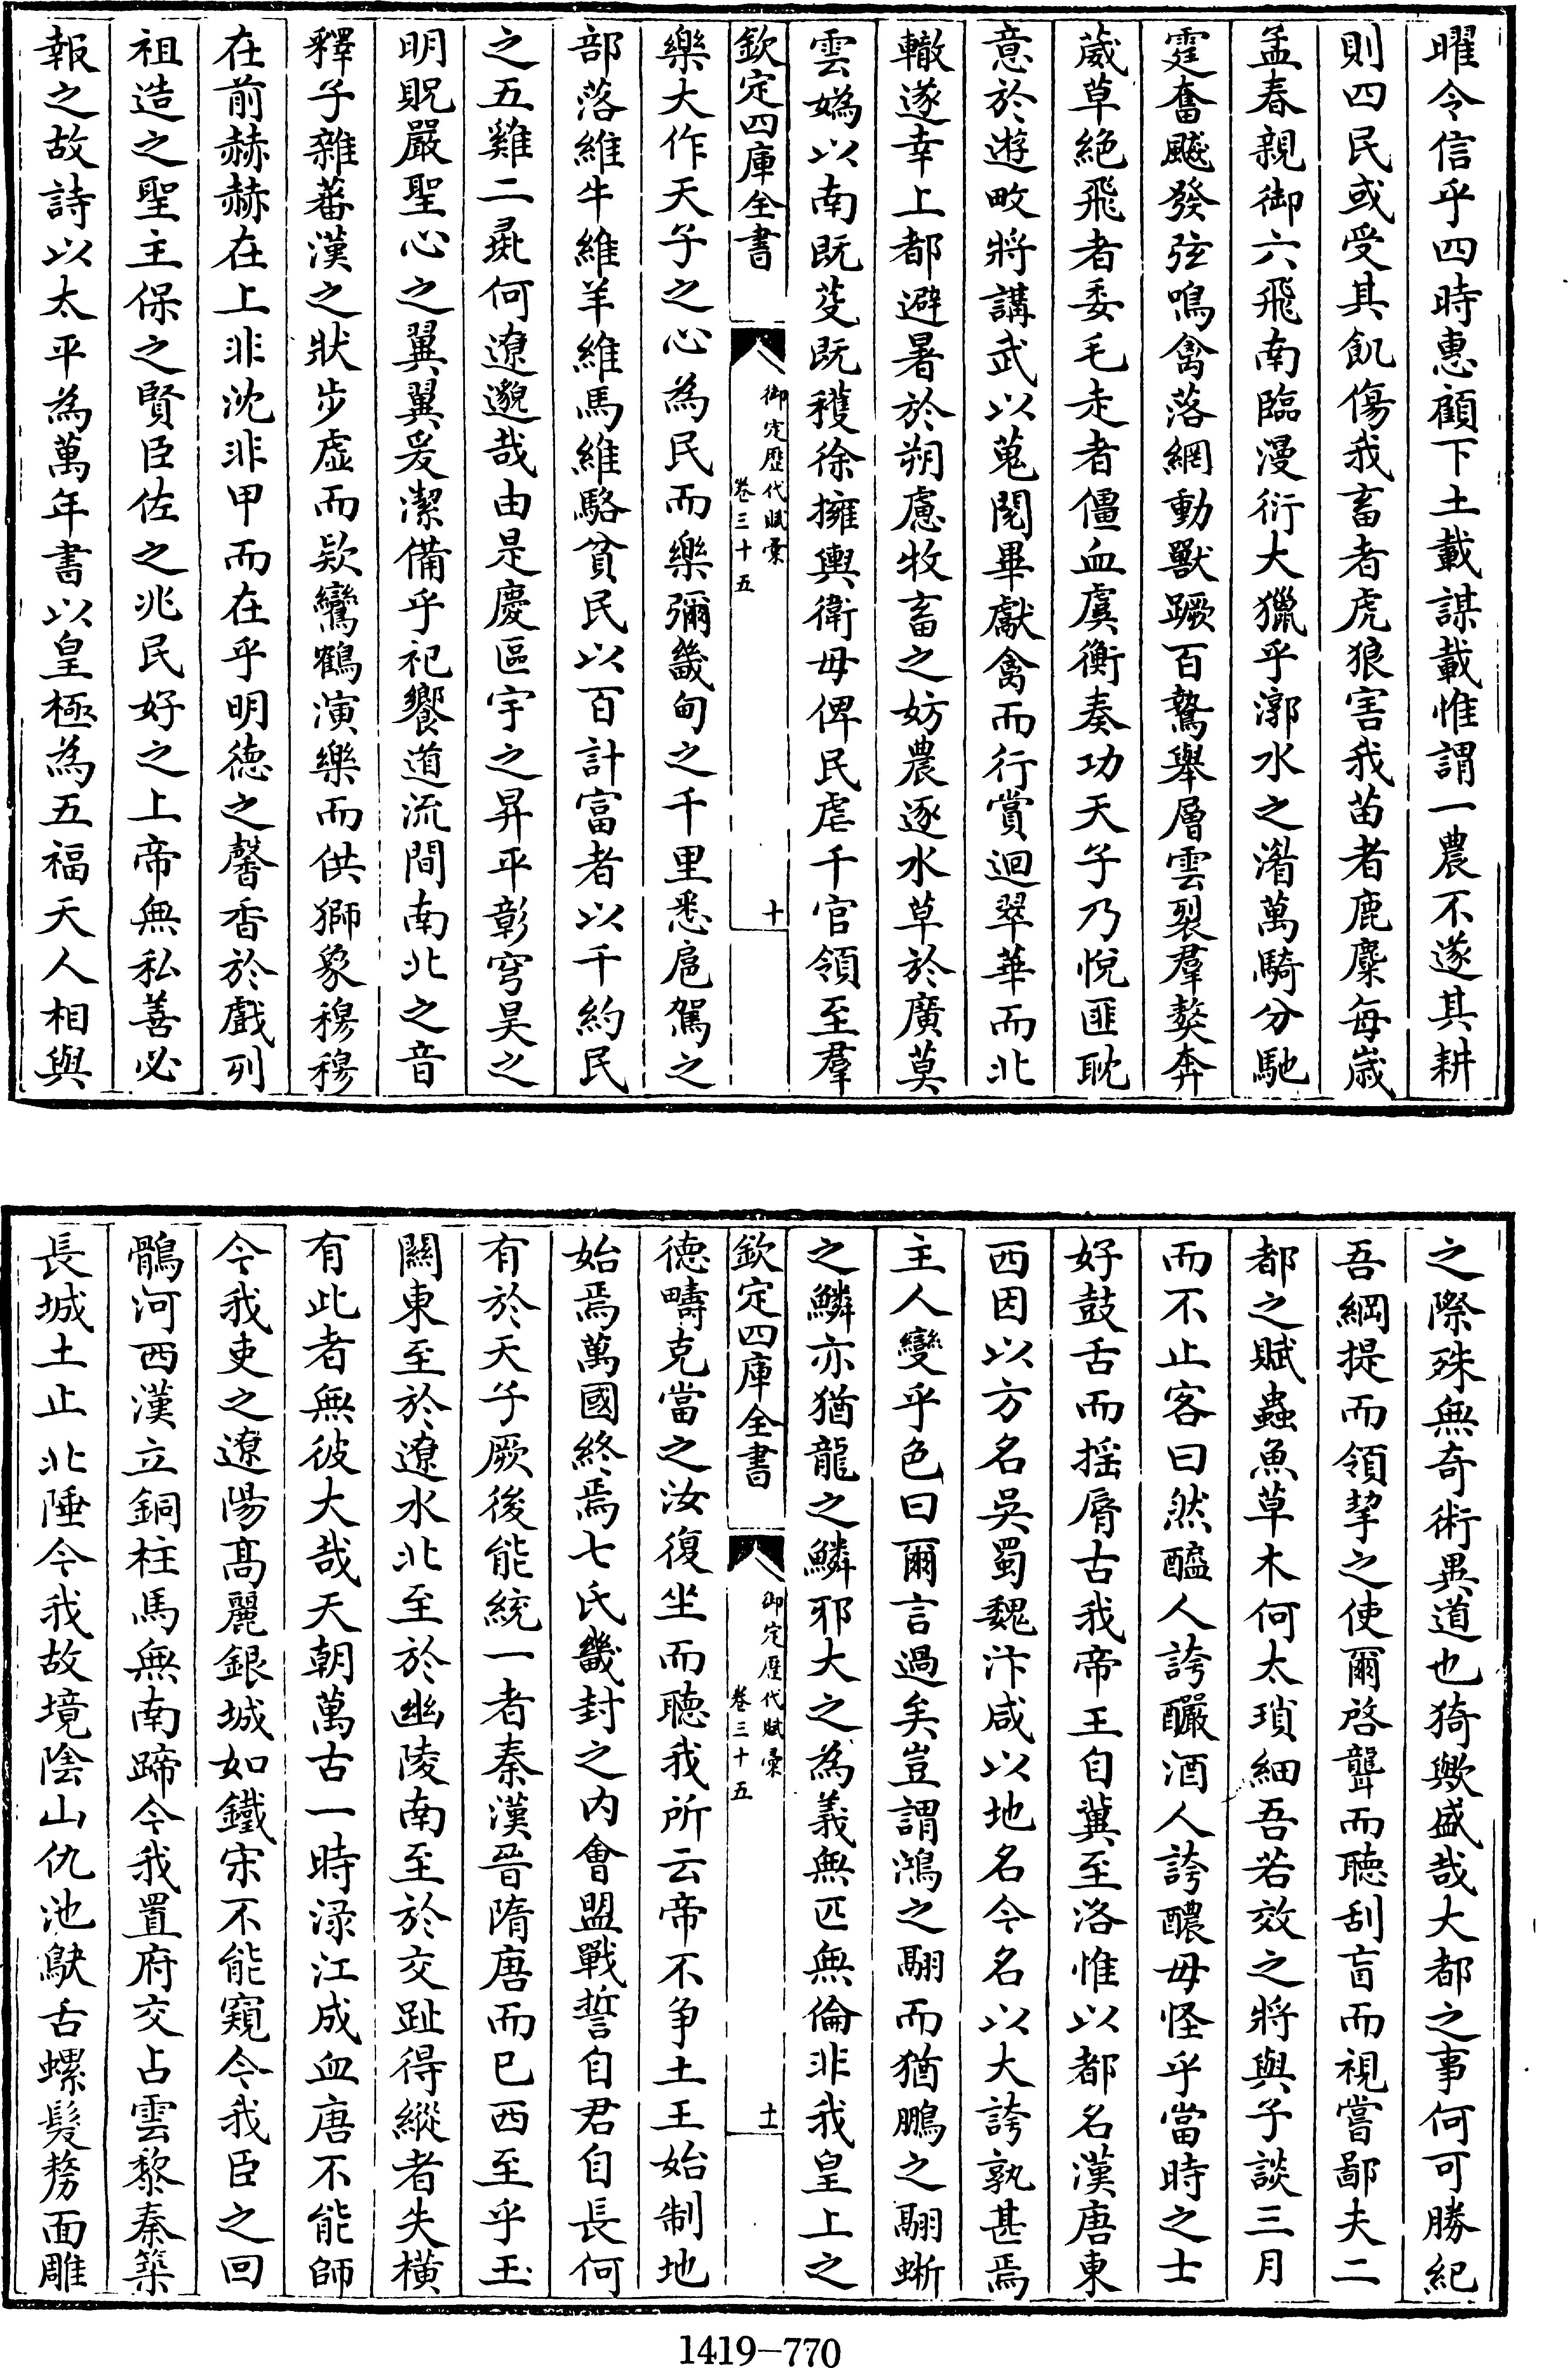 曜令信乎四時惠顧下土載謀載惟謂一農不遂其耕
則四民或受其飢傷我畜者虎狼害我苗者鹿麋每歳
孟春親御六飛南臨漫衍大獵乎漷水之濳萬騎分馳
霆奮飈發弦鳴禽落網動獸蹶百鷙舉層雲裂羣獒奔
葳草絕飛者委毛走者僵血虞衡奏功天子乃悅匪耽
意於遊畋將講武以蒐閱畢獻禽而行賞迴翠華而北
轍遂幸上都避暑於朔慮牧畜之妨農逐水草於廣莫
雲嬀以南既芟既穫徐擁輿衛毋俾民虐千官領至羣
欽定四庫全書
御定歷代賦彙
卷三十五
十
樂大作天子之心為民而樂彌畿甸之千里悉扈駕之
部落維牛維羊維馬維駱貧民以百計富者以千約民
之五雞二彘何遼邈哉由是慶區宇之昇平彰穹昊之
明貺嚴聖心之翼翼爰潔備乎祀饗道流間南北之音
釋子雜蕃漢之狀步虛而欵鸞鶴演樂而供獅象穆穆
在前赫赫在上非沈非甲而在乎明徳之馨香於戲列
祖造之聖主保之賢臣佐之兆民好之上帝無私善必
報之故詩以太平為萬年書以皇極為五福天人相與
之際殊無奇術異道也猗歟盛哉大都之事何可勝紀
吾綱提而領挈之使爾啓聾而聴刮盲而視嘗鄙夫二
都之賦蟲魚草木何太瑣細吾若效之將與子談三月
而不止客曰然醯人誇釅酒人誇醲毋怪乎當時之士
好鼓舌而揺脣古我帝王自冀至洛惟以都名漢唐東
西因以方名吳蜀魏汴咸以地名今名以大誇孰甚焉
主人變乎色曰爾言過矣豈謂鴻之翮而猶鵬之翮蜥
之鱗亦猶龍之鱗邪大之為義無匹無倫非我皇上之
欽定四庫全書
御定歷代賦彙
卷三十五
十一
徳疇克當之汝復坐而聴我所云帝不爭土王始制地
始焉萬國終焉七氏畿封之內會盟戰誓自君自長何
有於天子厥後能統一者秦漢晉隋唐而已西至乎玉
關東至於遼水北至於幽陵南至於交趾得縱者失橫
有此者無彼大哉天朝萬古一時渌江成血唐不能師
今我吏之遼陽髙麗銀城如鐵宋不能窺今我臣之回
鶻河西漢立銅柱馬無南蹄今我置府交占雲黎秦築
長城土止北陲今我故境陰山仇池鴃舌螺髮剺面雕
1419-770